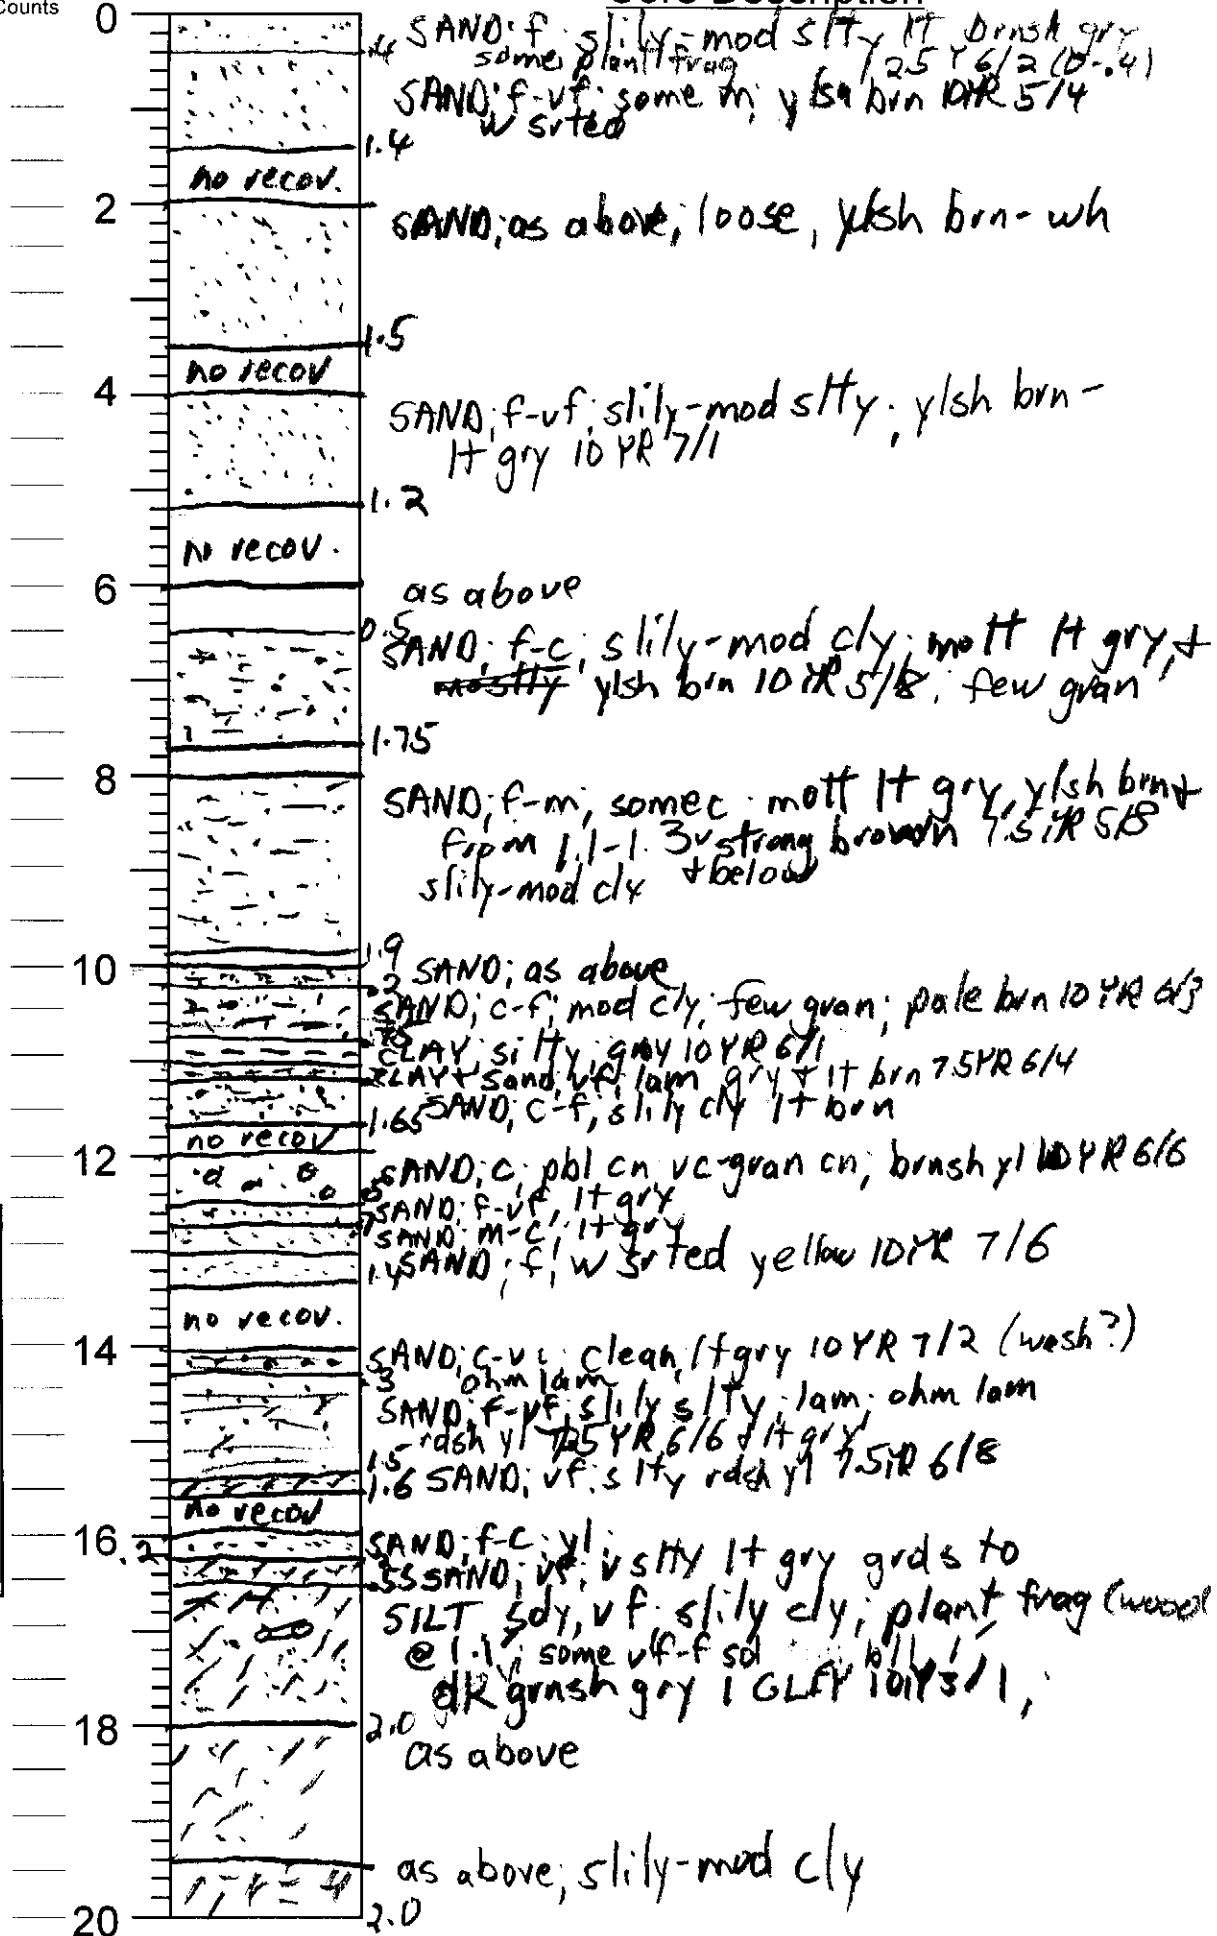 Counts
Core Description
0
.4 SAND; f; slily-mod slty lt brnsh gry
some plant frag 2.5Y6/2 (0-.4)
SAND; f-vf; some m; ylsh brn 10YR 5/4
w srted
1.4
no recov.
2
SAND; as above; loose, ylsh brn-wh
1.5
no recov
4
SAND; f-vf; slily-mod slty; ylsh brn-
lt gry 10 YR 7/1
1.2
no recov.
6
as above
0.5
SAND; f-c; slily-mod cly; mott lt gry, +
mostly ylsh brn 10YR 5/8; few gran
1.75
8
SAND; f-m; some c; mott lt gry, ylsh brn +
from 1.1-1.3 strong brown 7.5YR 5/8
slily-mod cly + below
1.9
10
SAND; as above
SAND; c-f; mod cly; few gran; pale brn 10YR 6/3
CLAY; silty; gry 10YR 6/1
CLAY + sand, vf, lam gry + lt brn 7.5YR 6/4
SAND; c-f, slily cly lt brn
1.65
no recov
12
SAND; c; pbl cn vc-gran cn; brnsh yl 10YR 6/6
SAND; f-vf, lt gry
SAND; m-c; lt gry
1.4 SAND; f; w srted yellow 10YR 7/6
no recov.
14
SAND; c-vc; clean, lt gry 10YR 7/2 (wash?)
.3 ohm lam
SAND; f-vf; slily slty; lam; ohm lam
rdsh yl 7.5YR 6/6 + lt gry
1.5
1.6 SAND; vf; slty rdsh yl 7.5YR 6/8
no recov
16
.2
SAND; f-c; yl;
SAND; vf; v slty lt gry grds to
SILT sdy, vf; slily cly; plant frag (wood
@ 1.1'; some vf-f sd
dk grnsh gry 1 GLEY 10Y 3/1,
2.0
18
as above
as above; slily-mod cly
2.0
20